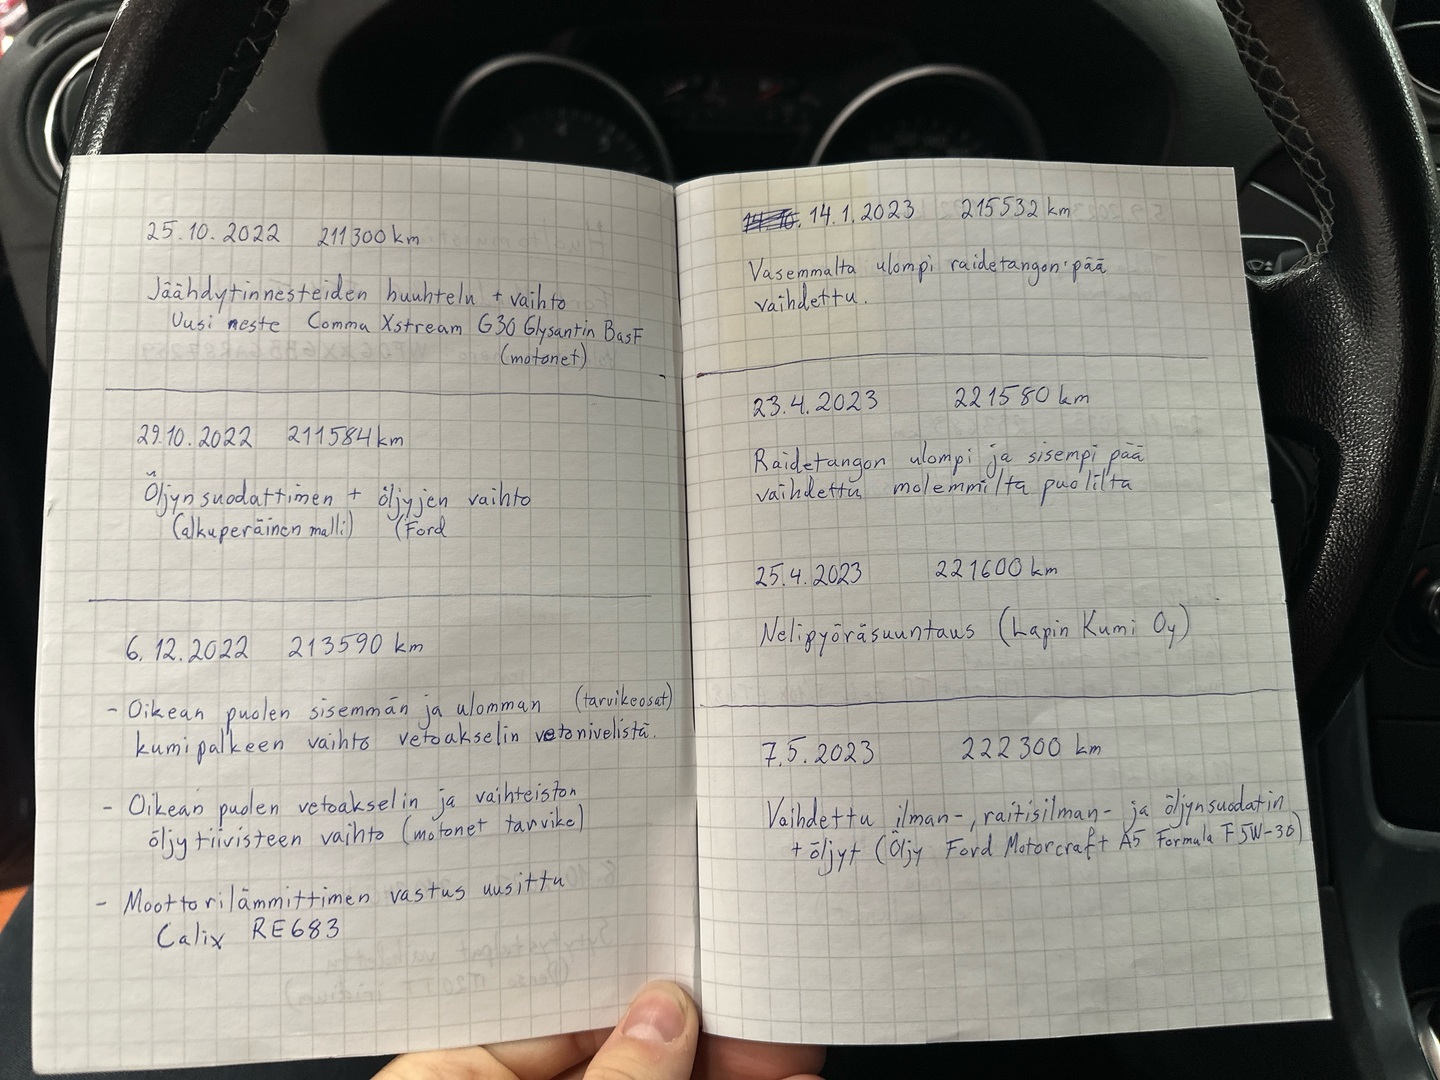 25.10.2022 211300 km
Jäähdytinnesteiden huuhtelu + vaihto
Uusi neste Comma Xstream G30 Glysantin BasF
(motonet)
29.10.2022 211584 km
Öljynsuodattimen + öljyjen vaihto
(alkuperäinen malli) (Ford
6.12.2022 213590 km
- Oikean puolen sisemmän ja ulomman (tarvikeosat)
kumipalkeen vaihto vetoakselin vetonivelistä.
- Oikean puolen vetoakselin ja vaihteiston
öljytiivisteen vaihto (motonet tarvike)
- Moottorilämmittimen vastus uusittu
Calix RE683
14.1.2023 215532 km
Vasemmalta ulompi raidetangon pää
vaihdettu.
23.4.2023 221580 km
Raidetangon ulompi ja sisempi pää
vaihdettu molemmilta puolilta
25.4.2023 221600 km
Nelipyöräsuuntaus (Lapin Kumi Oy)
7.5.2023 222300 km
Vaihdettu ilman-, raitisilman- ja öljynsuodatin
+ öljyt (Öljy Ford Motorcraft A5 Formula F 5W-30)